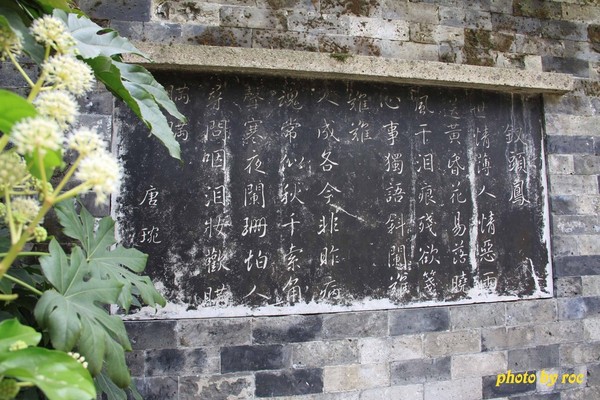 釵頭鳳
世情薄人情惡雨
送黃昏花易落曉
風干泪痕殘欲箋
心事獨語斜闌難
難難
人成各今非昨病
魂常似秋千索角
聲寒夜闌珊怕人
尋問咽泪妝歡瞞
瞞瞞
唐琬
photo by roc